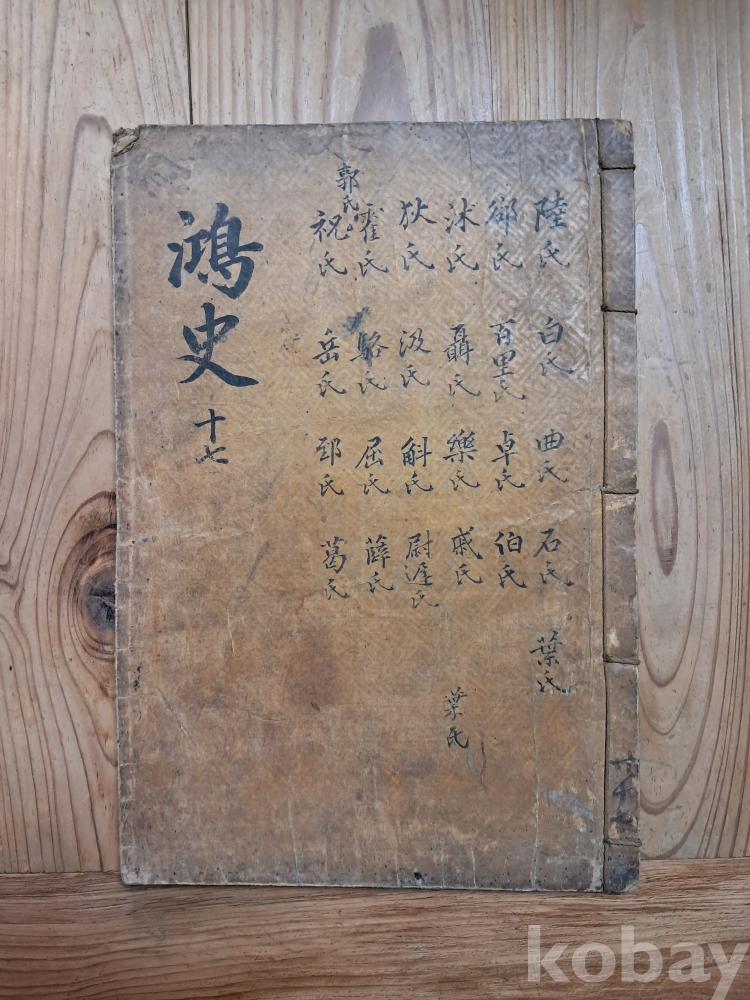 陸氏 白氏 曲氏 石氏 葉氏
氏 百里氏 卓氏 伯氏
氏 聶氏 樂氏 戚氏 葉氏
狄氏 汲氏 斛氏 尉遲氏
霍氏 駱氏 屈氏 薛氏
郭氏
祝氏 岳氏 郅氏 葛氏
鴻史 十七
kobay